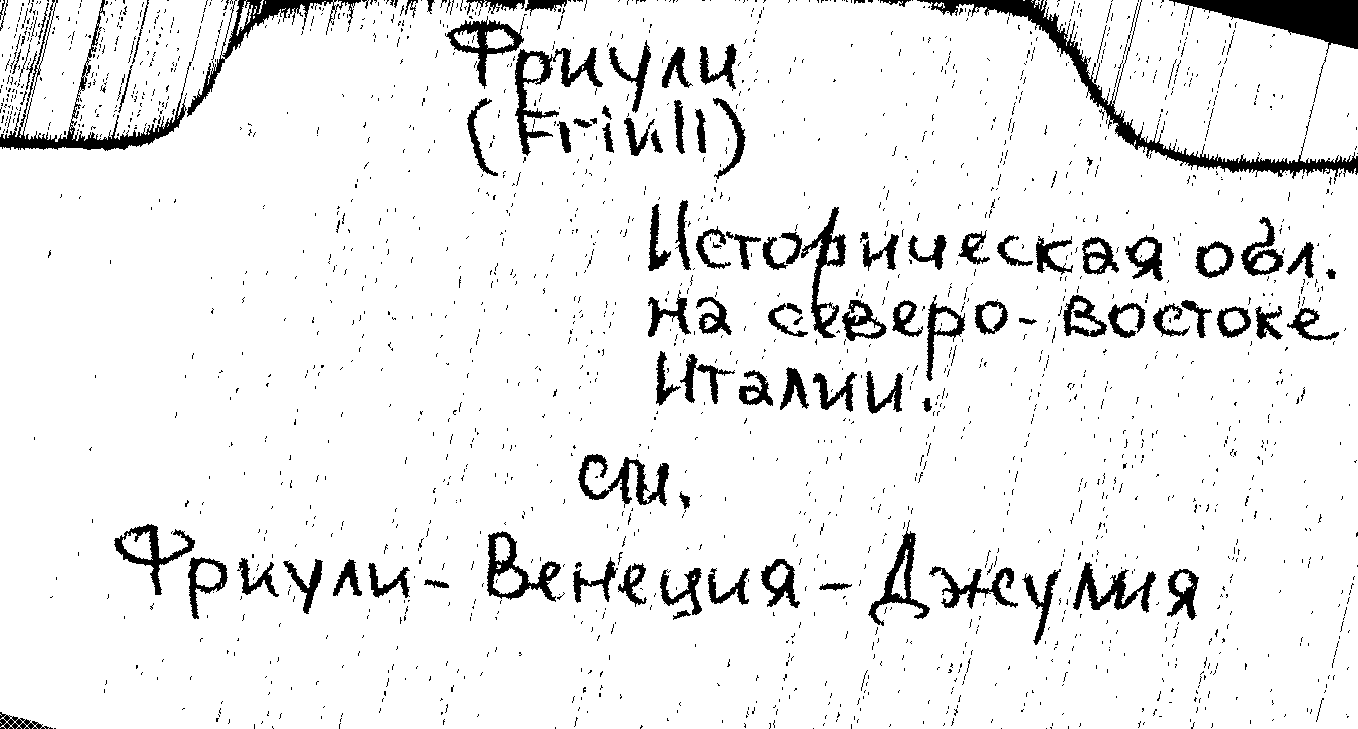 Фриули
(Friuli)
Историческая обл.
на северо-востоке
Италии.
см.
Фриули-Венеция-Джулия